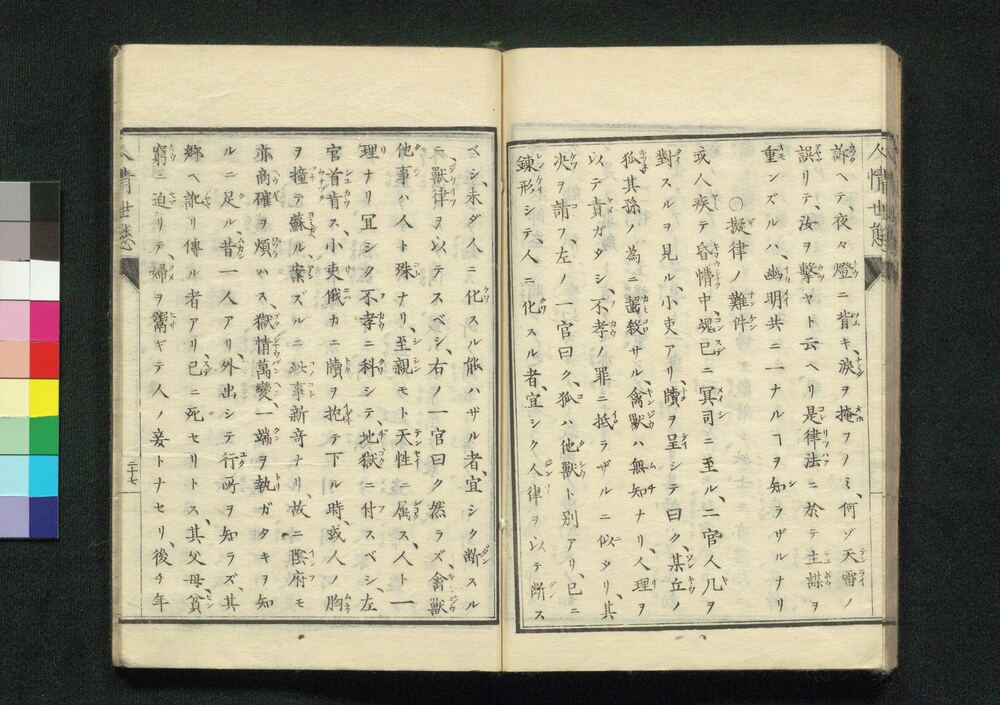 訴ヘテ、夜々燈ニ背キ、涙ヲ掩フノミ、何ゾ天雷ノ
誤リテ、汝ヲ擊ヤト云ヘリ是律法ニ於テ主謀ヲ
重ンズルハ、幽明共ニ一ナルヿヲ知ラザルナリ
○擬律ノ難件
或人疾テ昏憒中、魂已ニ冥司ニ至ル、二官人几ヲ
對スルヲ見ル、小吏アリ牘ヲ呈シテ曰ク某丘ノ
狐其孫ノ為ニ嚙殺サル、禽獸ハ無知ナリ、人理ヲ
以テ責ガタシ、不孝ノ罪ニ抵ラザルニ似タリ、其
决ヲ請フ、左ノ一官曰ク、狐ハ他獸ト別アリ、已ニ
鍊形シテ、人ニ化スル者、宜シク人律ヲ以テ断ス
ベシ、未ダ人ニ化スル能ハザル者、宜シク断スル
ニ、獸律ヲ以テスベシ、右ノ一官曰ク然ラズ、禽獸
他事ハ人ト殊ナリ、至親モト天性ニ属ス、人ト一
理ナリ宜シク不孝ニ科シテ、地獄ニ付スベシ、左
官首肯ス、小吏俄カニ牘ヲ抱テ下ル時、或人ノ胸
ヲ撞テ蘇ル、案ズルニ此事新奇ナリ、故ニ陰府モ
亦商確ヲ煩ハス、獄情萬變、一端ヲ執ガタキヲ知
ルニ足ル、昔一人アリ、外出シテ行所ヲ知ラズ、其
郷ヘ訛リ傳ル者アリ、已ニ死セリトス其父母、貧
窮ニ迫リテ、婦ヲ鬻ギテ人ノ妾トナセリ、後チ年
人情世態
二十七